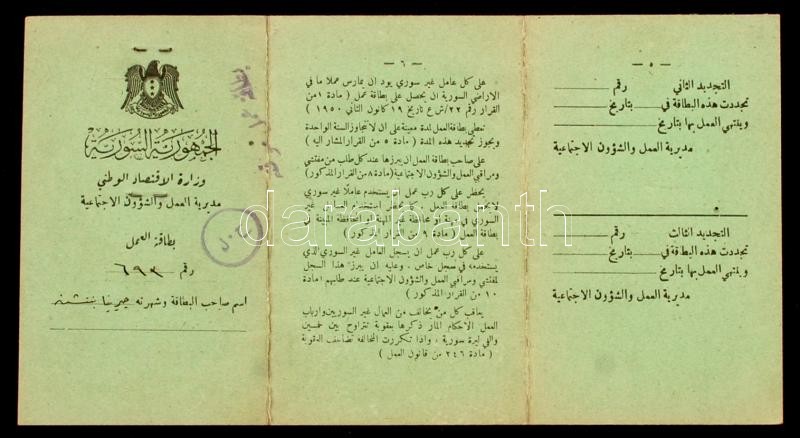 الجمهورية السورية
وزارة الاقتصاد الوطني
مديرية العمل والشؤون الاجتماعية
بطاقة العمل
رقم ٦٩٣
اسم صاحب البطاقة وشهرته
— ٦ —
على كل عامل غير سوري يود ان يمارس عملا ما في
الاراضي السورية ان يحصل على بطاقة عمل ( مادة ١ من
القرار رقم ٢٢/ش ع تاريخ ١٩ كانون الثاني ١٩٥٠ )
تعطى بطاقة العمل لمدة معينة على ان لا تتجاوز السنة الواحدة
ويجوز تجديد هذه المدة ( مادة ٥ من القرار المشار اليه )
على صاحب بطاقة العمل ان يبرزها عند كل طلب من مفتشي
ومراقبي العمل والشؤون الاجتماعية (مادة ٨ من القرار المذكور)
يحظر على كل رب عمل ان يستخدم عاملا غير سوري
لا يحمل بطاقة العمل . كما يحظر استخدام العامل غير
السوري في مدينة او محافظة غير المدينة او المحافظة المعينة في
بطاقة العمل ( مادة ٩ من القرار المذكور )
على كل رب عمل ان يسجل العامل غير السوري الذي
يستخدمه في سجل خاص ، وعليه ان يبرز هذا السجل
لمفتشي ومراقبي العمل والشؤون الاجتماعية عند طلبهم (مادة
١٠ من القرار المذكور )
يعاقب كل من يخالف من العمال غير السوريين وارباب
العمل الاحكام المار ذكرها بعقوبة تتراوح بين خمسين
والفي ليرة سورية ، واذا تكررت المخالفة تضاعف العقوبة
( مادة ٢٤٦ من قانون العمل )
— ٥ —
التجديد الثاني رقم
تجددت هذه البطاقة في بتاريخ
وينتهي العمل بها بتاريخ
مديرية العمل والشؤون الاجتماعية
التجديد الثالث رقم
تجددت هذه البطاقة في بتاريخ
وينتهي العمل بها بتاريخ
مديرية العمل والشؤون الاجتماعية
darabanth